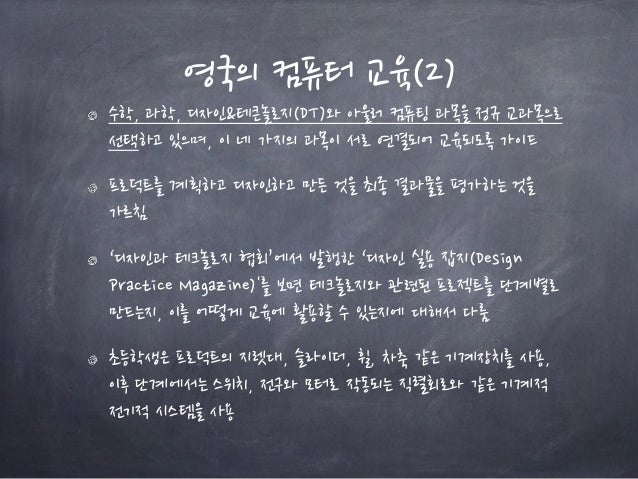 영국의 컴퓨터 교육(2)
수학, 과학, 디자인&테크놀로지(DT)와 아울러 컴퓨팅 과목을 정규 교과목으로
선택하고 있으며, 이 네 가지의 과목이 서로 연결되어 교육되도록 가이드
프로덕트를 계획하고 디자인하고 만든 것을 최종 결과물을 평가하는 것을
가르침
‘디자인과 테크놀로지 협회’에서 발행한 ‘디자인 실용 잡지(Design
Practice Magazine)’를 보면 테크놀로지와 관련된 프로젝트를 단계별로
만드는지, 이를 어떻게 교육에 활용할 수 있는지에 대해서 다룸
초등학생은 프로덕트의 지렛대, 슬라이더, 휠, 차축 같은 기계장치를 사용,
이후 단계에서는 스위치, 전구와 모터로 작동되는 직렬회로와 같은 기계적
전기적 시스템을 사용